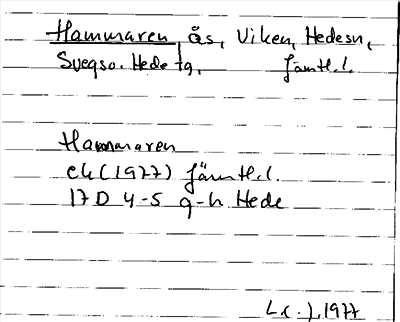 Hammaren, ås, Viken, Hedesn,
Svegso. Hede tg, Jämtl.l.
Hammaren
ek (1977) Jämtl.l.
17 D 4-5 g-h Hede
L.(.), 1977